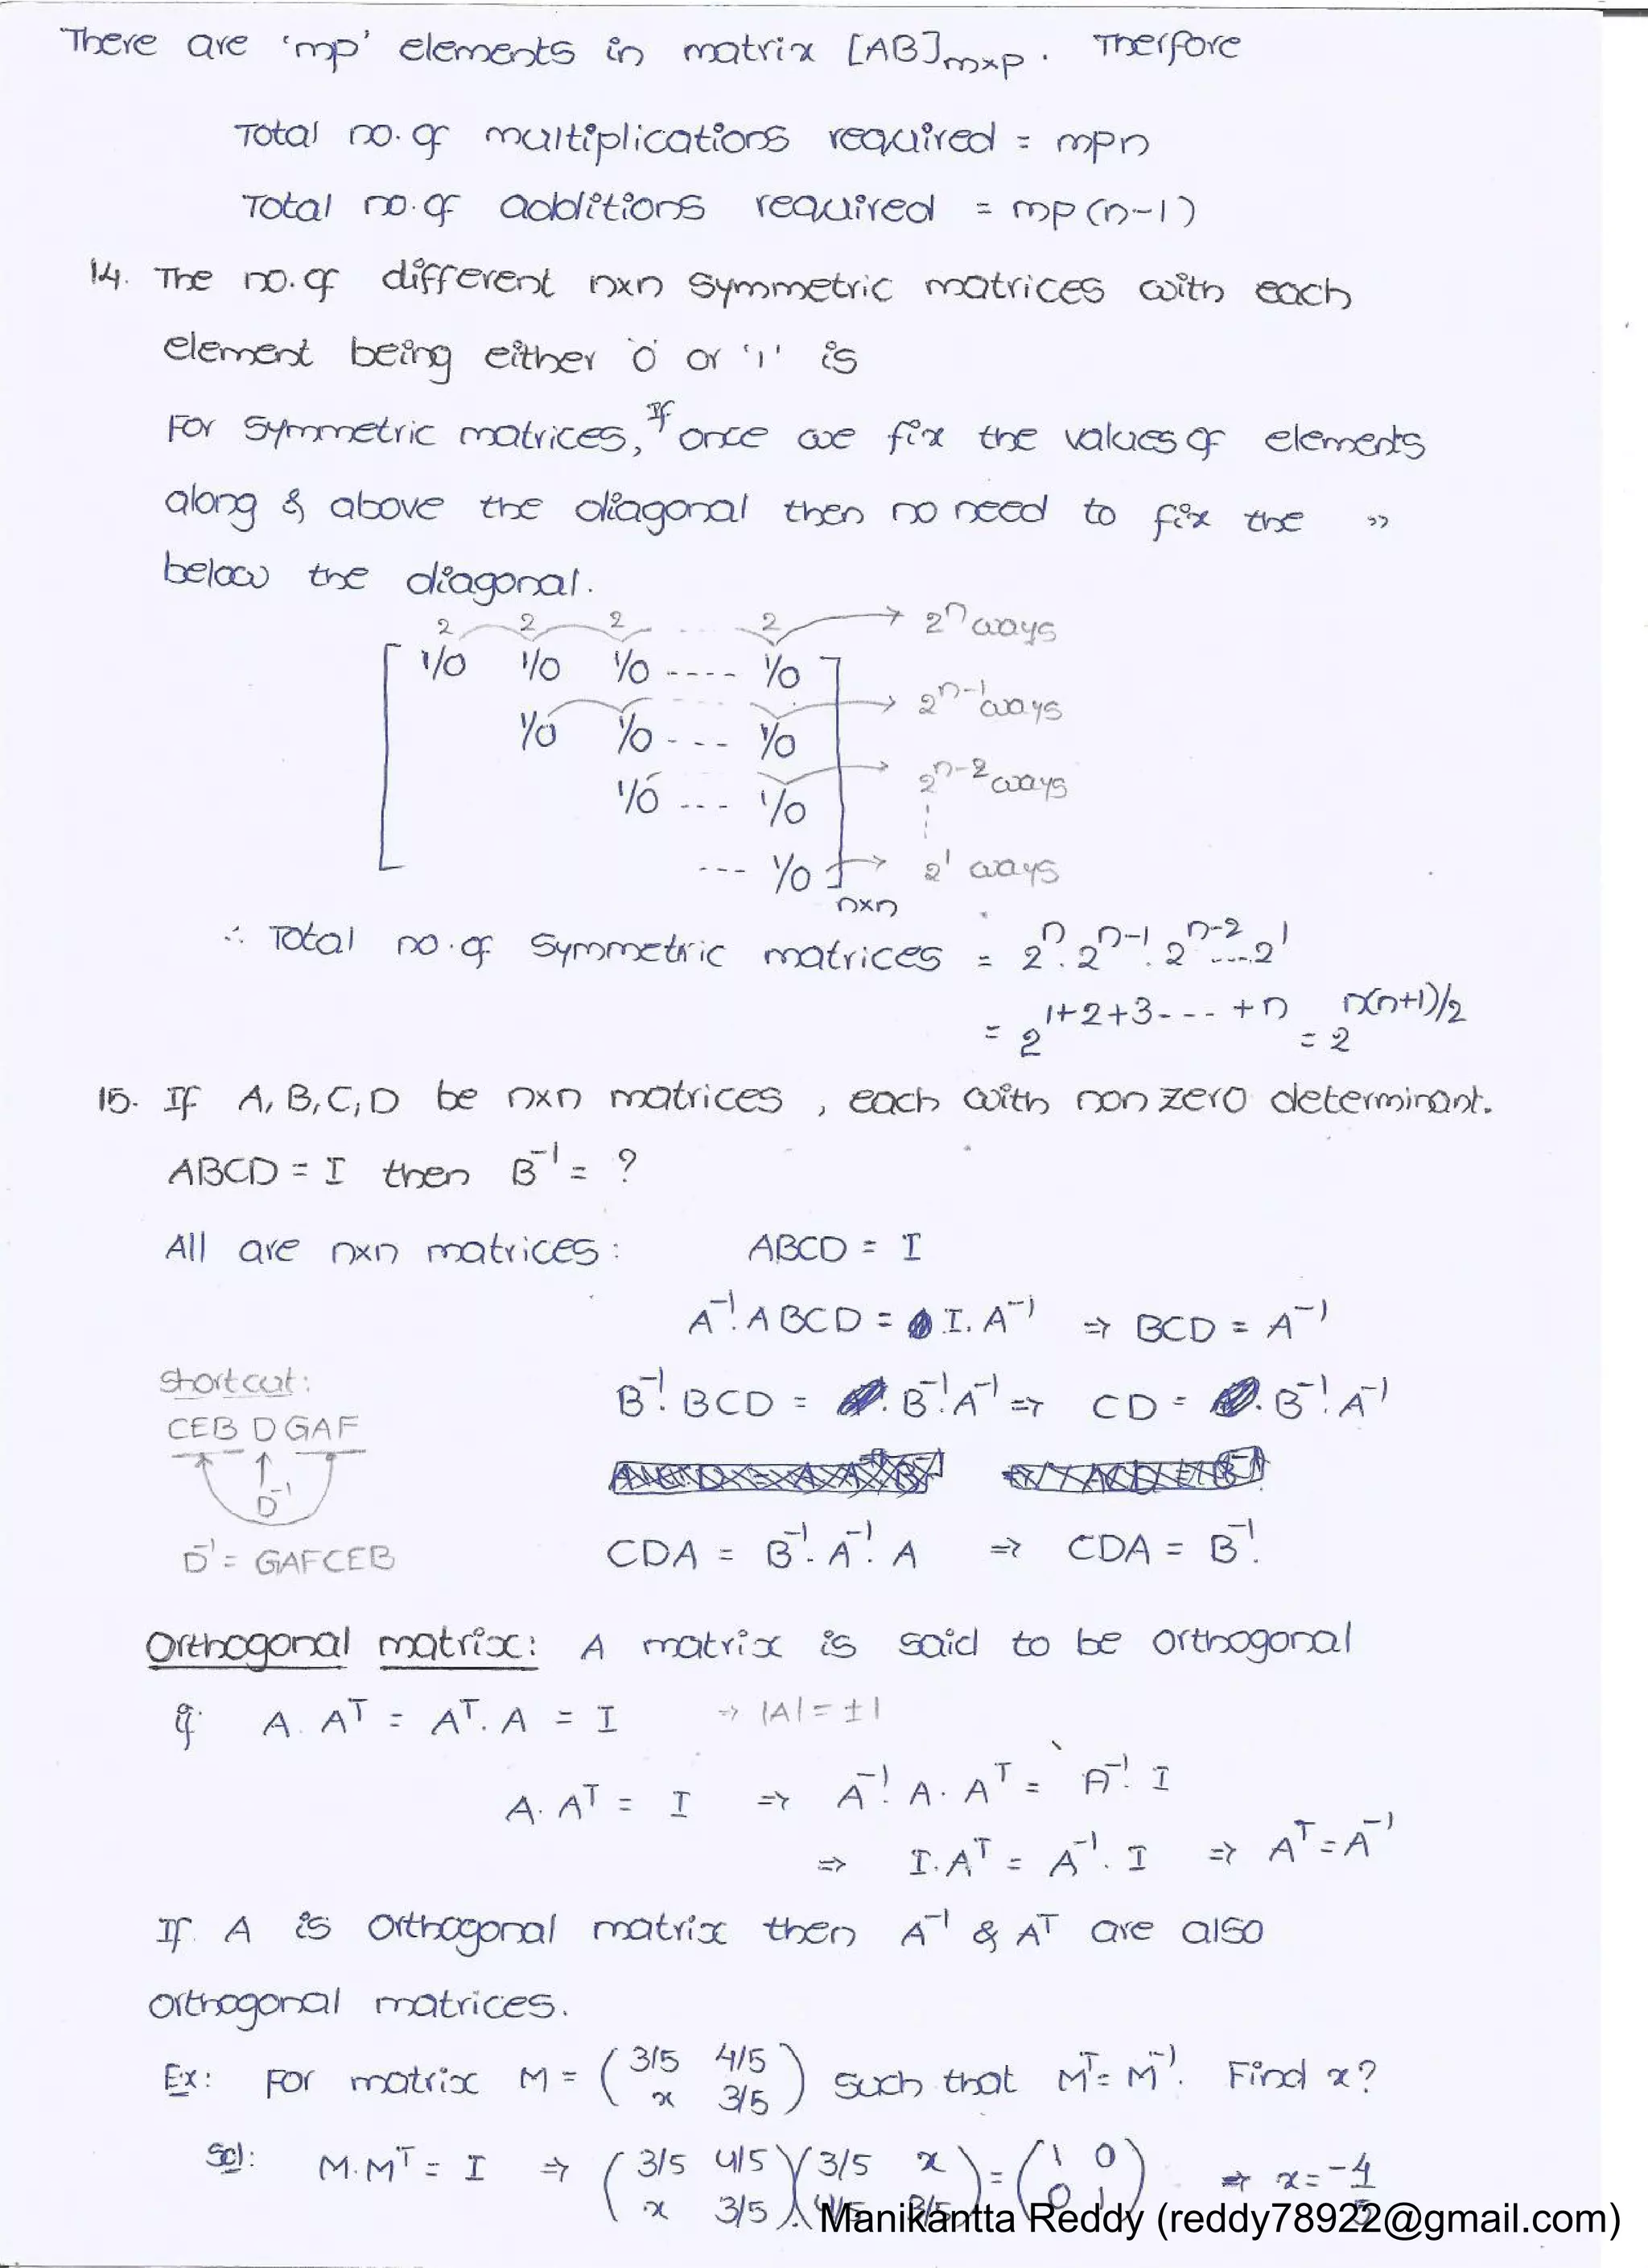 There are 'mp' elements in matrix [AB]m×p. Therfore
Total no. of multiplications required = mpn
Total no. of additions required = mp(n-1)
14. The no. of different n×n symmetric matrices with each
element being either '0' or '1' is
For symmetric matrices, If once we fix the values of elements
along & above the diagonal then no need to fix the "
below the diagonal.
2 2 2 ... 2 → 2^n ways
1/0 1/0 1/0 ---- 1/0 → 2^(n-1) ways
1/0 1/0 ---- 1/0 → 2^(n-2) ways
1/0 --- 1/0
--- 1/0 → 2^1 ways
n×n
∴ Total no. of symmetric matrices = 2^n . 2^(n-1) . 2^(n-2) ---- 2^1
= 2^(1+2+3---+n) = 2^(n(n+1)/2)
15. If A, B, C, D be n×n matrices, each with non zero determinant.
ABCD = I then B^-1 = ?
All are n×n matrices: ABCD = I
A^-1.ABCD = I.A^-1 ⇒ BCD = A^-1
shortcut:
B^-1.BCD = B^-1.A^-1 ⇒ CD = B^-1.A^-1
CEB D GAF
D^-1
CDA = B^-1.A^-1.A ⇒ CDA = B^-1.
D^-1 = GAFCEB
Orthogonal matrix: A matrix is said to be orthogonal
if A.A^T = A^T.A = I ⇒ |A| = ±1
A.A^T = I ⇒ A^-1.A.A^T = A^-1.I
⇒ I.A^T = A^-1.I ⇒ A^T = A^-1
If A is orthogonal matrix then A^-1 & A^T are also
orthogonal matrices.
Ex: For matrix M = (3/5 4/5
x 3/5) such that M^T = M^-1. Find x?
Sol: M.M^T = I ⇒ (3/5 4/5
x 3/5)(3/5 x
4/5 3/5) = (1 0
0 1) ⇒ x = -4/5
Manikantta Reddy (reddy78922@gmail.com)